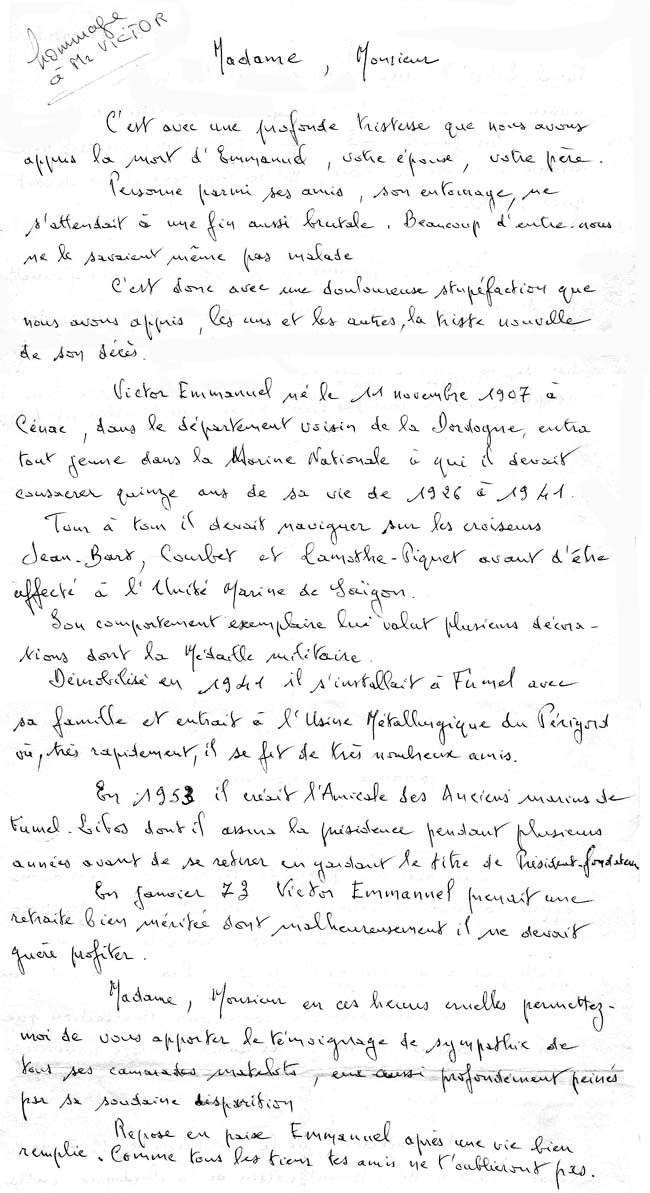 hommage
à Mr VICTOR
Madame, Monsieur
C'est avec une profonde tristesse que nous avons
appris la mort d'Emmanuel, votre époux, votre père.
Personne parmi ses amis, son entourage, ne
s'attendait à une fin aussi brutale. Beaucoup d'entre-nous
ne le savaient même pas malade
C'est donc avec une douloureuse stupéfaction que
nous avons appris, les uns et les autres, la triste nouvelle
de son décès.
Victor Emmanuel né le 11 novembre 1907 à
Cénac, dans le département voisin de la Dordogne, entra
tout jeune dans la Marine Nationale à qui il devait
consacrer quinze ans de sa vie de 1926 à 1941.
Tour à tour il devait naviguer sur les croiseurs
Jean-Bart, Courbet et Lamothe-Piquet avant d'être
affecté à l'Unité Marine de Saïgon.
Son comportement exemplaire lui valut plusieurs décora-
tions dont la Médaille militaire.
Démobilisé en 1941 il s'installait à Fumel avec
sa famille et entrait à l'Usine Métallurgique du Périgord
où, très rapidement, il se fit de très nombreux amis.
En 1953 il créait l'Amicale des Anciens marins de
Fumel-Libos dont il assura la présidence pendant plusieurs
années avant de se retirer en gardant le titre de Président-fondateur
En Janvier 73 Victor Emmanuel prenait une
retraite bien méritée dont malheureusement il ne devait
guère profiter.
Madame, Monsieur en ces heures cruelles permettez-
moi de vous apporter le témoignage de sympathie de
tous ses camarades matelots, eux aussi profondément peinés
par sa soudaine disparition
Repose en paix Emmanuel après une vie bien
remplie. Comme tous les tiens tes amis ne t'oublieront pas.